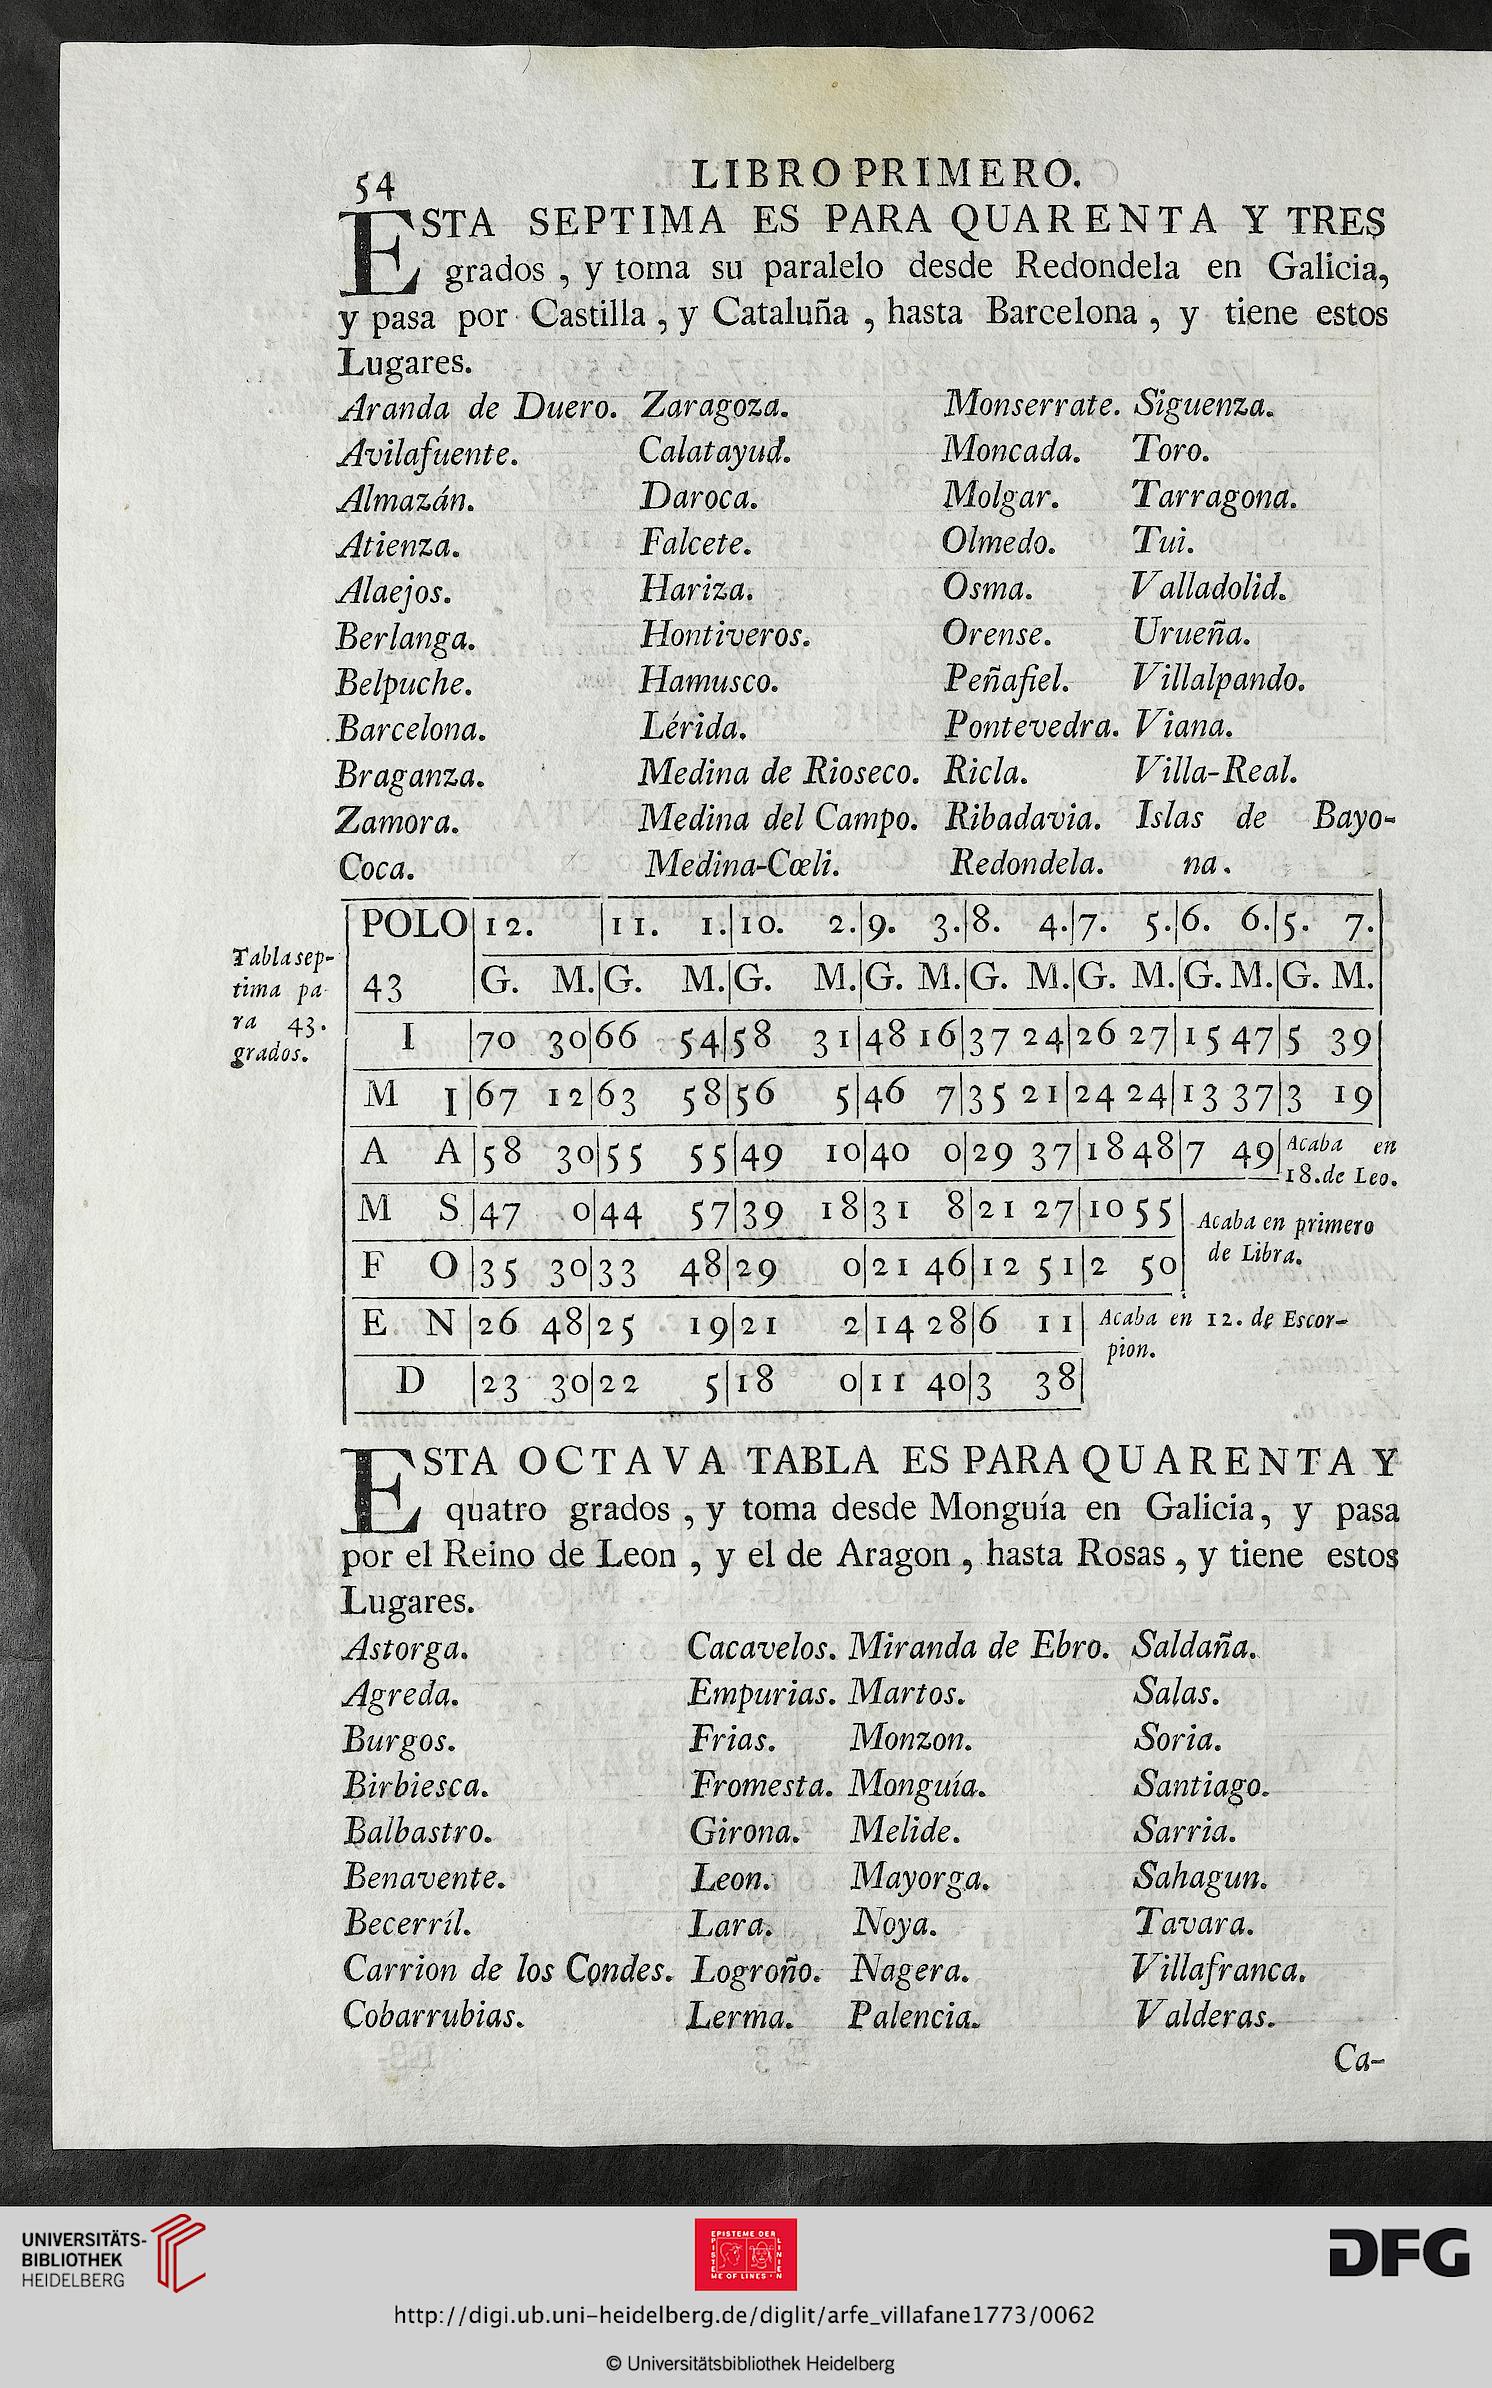 54 LIBRO PRIMERO.
ESTA SEPTIMA ES PARA QUARENTA Y TRES
grados, y toma su paralelo desde Redondela en Galicia,
y pasa por Castilla, y Cataluña, hasta Barcelona, y tiene estos
Lugares.
Aranda de Duero. Zaragoza. Monserrate. Siguenza.
Avilafuente. Calatayud. Moncada. Toro.
Almazán. Daroca. Molgar. Tarragona.
Atienza. Falcete. Olmedo. Tui.
Alaejos. Hariza. Osma. Valladolid.
Berlanga. Hontiveros. Orense. Urueña.
Belpuche. Hamusco. Peñafiel. Villalpando.
Barcelona. Lérida. Pontevedra. Viana.
Braganza. Medina de Rioseco. Ricla. Villa-Real.
Zamora. Medina del Campo. Ribadavia. Islas de Bayo-
Coca. Medina-Cœli. Redondela. na.
Tabla sep-
tima pa-
ra 43.
grados.
POLO 12. 11. 1. 10. 2. 9. 3. 8. 4. 7. 5. 6. 6. 5. 7.
43 G. M. G. M. G. M. G. M. G. M. G. M. G. M. G. M.
I 70 30 66 54 58 31 48 16 37 24 26 27 15 47 5 39
M I 67 12 63 58 56 5 46 7 35 21 24 24 13 37 3 19
A A 58 30 55 55 49 10 40 0 29 37 18 48 7 49 Acaba en
18. de Leo.
M S 47 0 44 57 39 18 31 8 21 27 10 55 Acaba en primero
de Libra.
F O 35 30 33 48 29 0 21 46 12 51 2 50
E N 26 48 25 19 21 2 14 28 6 11 Acaba en 12. de Escor-
pion.
D 23 30 22 5 18 0 11 40 3 38
ESTA OCTAVA TABLA ES PARA QUARENTA Y
quatro grados, y toma desde Monguía en Galicia, y pasa
por el Reino de Leon, y el de Aragon, hasta Rosas, y tiene estos
Lugares.
Astorga. Cacavelos. Miranda de Ebro. Saldaña.
Agreda. Empurias. Martos. Salas.
Burgos. Frias. Monzon. Soria.
Birbiesca. Fromesta. Monguía. Santiago.
Balbastro. Girona. Melide. Sarria.
Benavente. Leon. Mayorga. Sahagun.
Becerríl. Lara. Noya. Tavara.
Carrion de los Condes. Logroño. Nagera. Villafranca.
Cobarrubias. Lerma. Palencia. Valderas.
Ca-
UNIVERSITÄTS-
BIBLIOTHEK
HEIDELBERG
EPISTEME DER
LINIEN
EPISTEME OF LINES
DFG
http://digi.ub.uni-heidelberg.de/diglit/arfe_villafane1773/0062
© Universitätsbibliothek Heidelberg